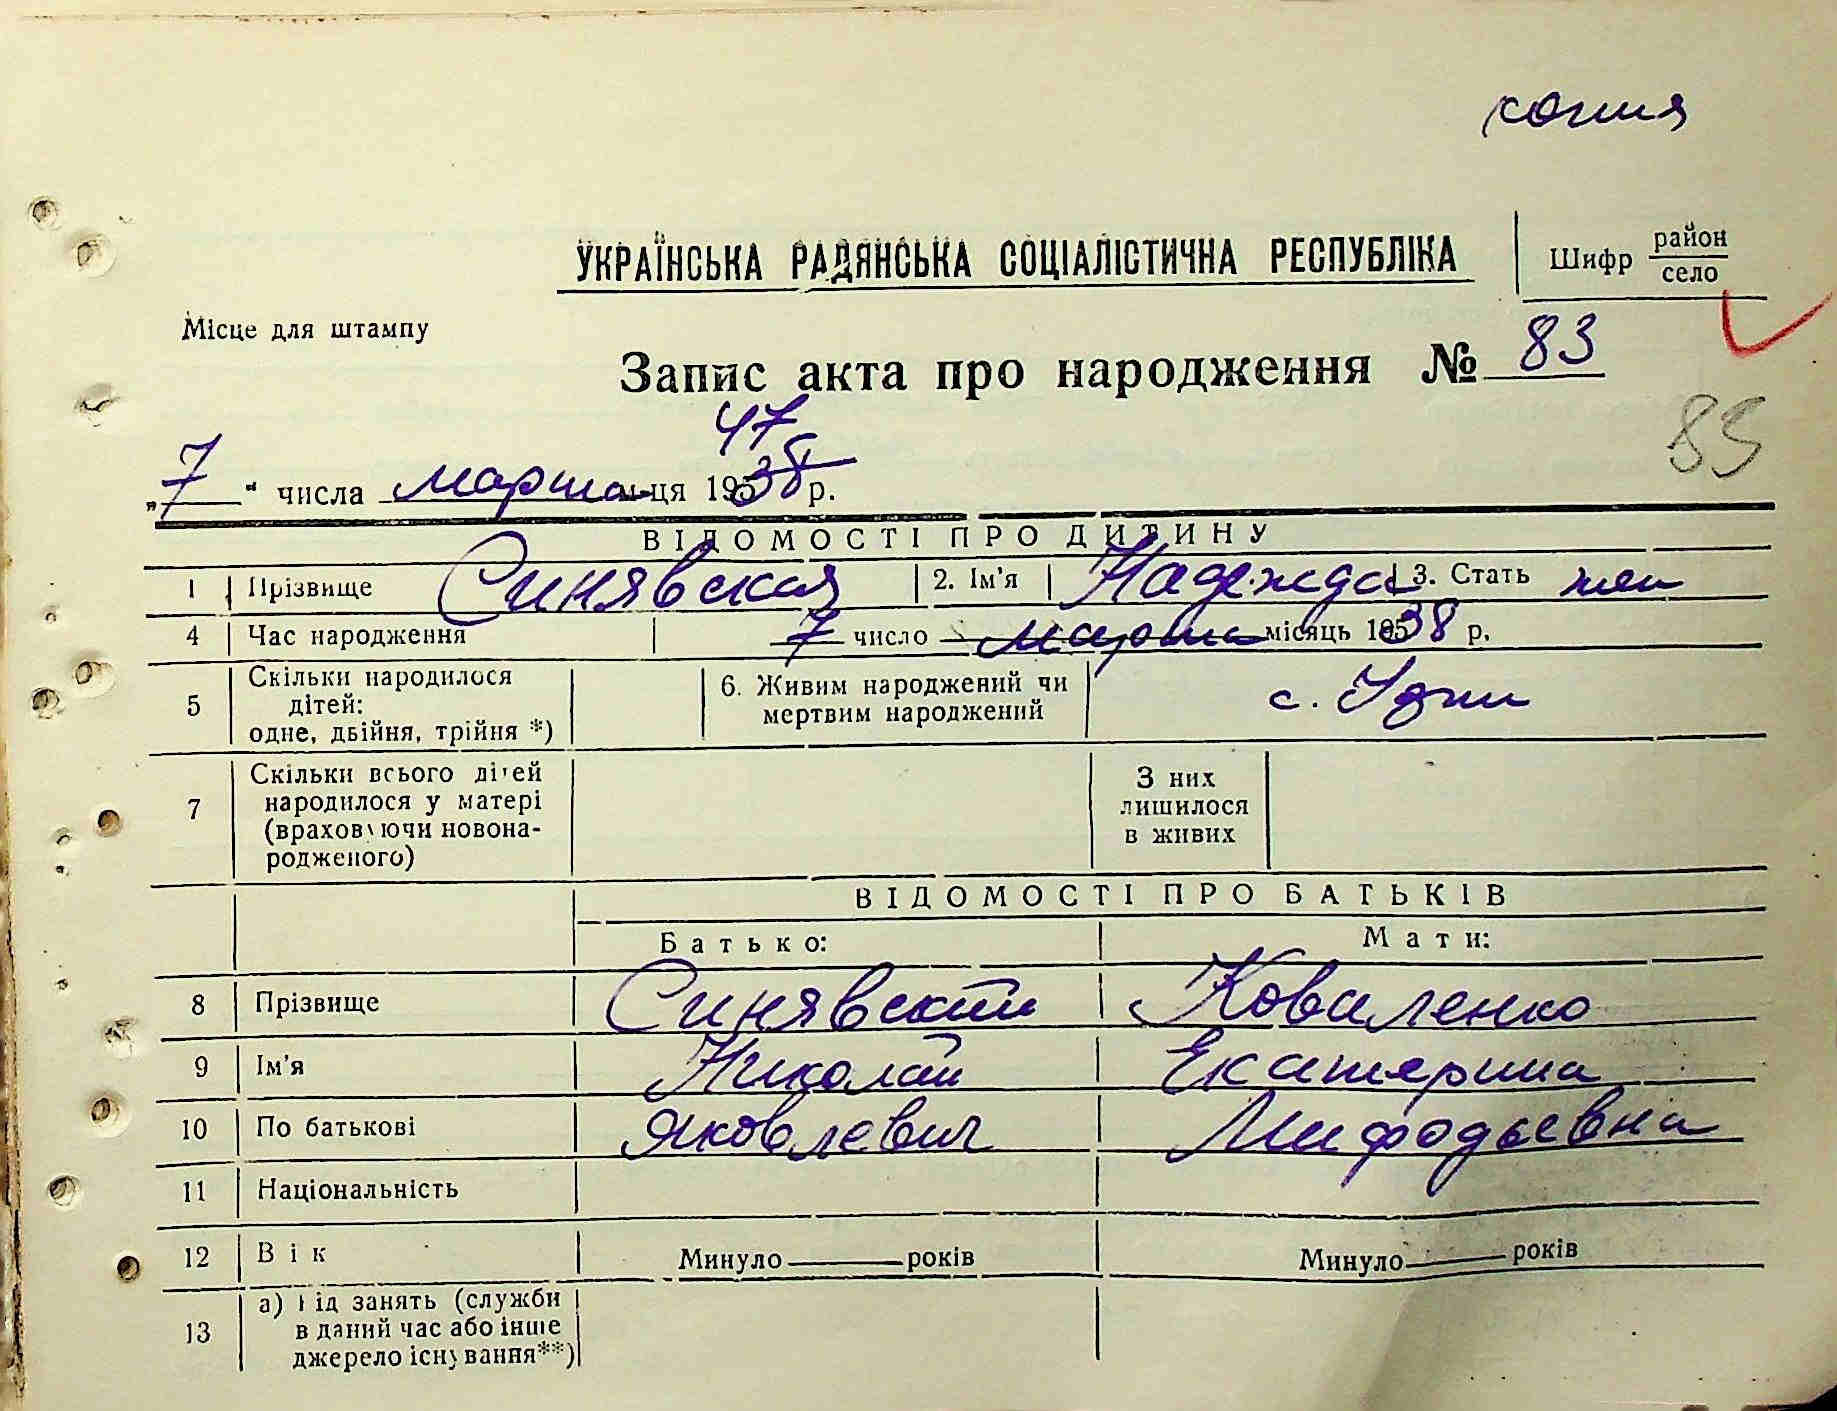 копия
УКРАЇНСЬКА РАДЯНСЬКА СОЦІАЛІСТИЧНА РЕСПУБЛІКА
Шифр район
село
Місце для штампу
Запис акта про народження № 83
85
47
„7" числа марта м-ця 1938 р.
ВІДОМОСТІ ПРО ДИТИНУ
1 Прізвище Синявская 2. Ім'я Надежда 3. Стать жен
4 Час народження 7 число марта місяць 1938 р.
5 Скільки народилося дітей: одне, двійня, трійня *) 6. Живим народжений чи мертвим народжений с. Узин
7 Скільки всього дітей народилося у матері (враховуючи новонародженого) З них лишилося в живих
ВІДОМОСТІ ПРО БАТЬКІВ
Батько: Мати:
8 Прізвище Синявский Коваленко
9 Ім'я Николай Екатерина
10 По батькові Яковлевич Мифодьевна
11 Національність
12 Вік Минуло ____ років Минуло ____ років
13 а) Рід занять (служби в даний час або інше джерело існування**)